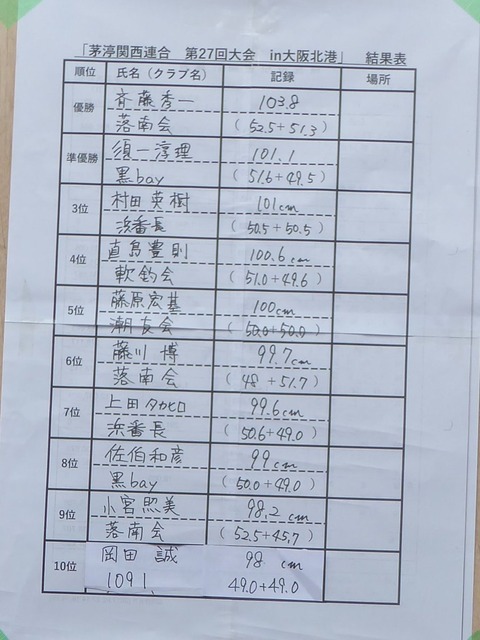 「茅渟関西連合 第27回大会 in大阪北港」 結果表
順位 氏名（クラブ名） 記録 場所
優勝 斉藤秀一 103.8
落南会 (52.5+51.3)
準優勝 須一淳理 101.1
黒bay (51.6+49.5)
3位 村田英樹 101cm
浜番長 (50.5+50.5)
4位 直島豊則 100.6cm
軟釣会 (51.0+49.6)
5位 藤原宏基 100cm
潮友会 (50.0+50.0)
6位 藤川 博 99.7cm
落南会 (48+51.7)
7位 上田タカヒロ 99.6cm
浜番長 (50.6+49.0)
8位 佐伯和彦 99cm
黒bay (50.0+49.0)
9位 小宮照美 98.2cm
落南会 (52.5+45.7)
10位 岡田 誠 98cm
1091 49.0+49.0